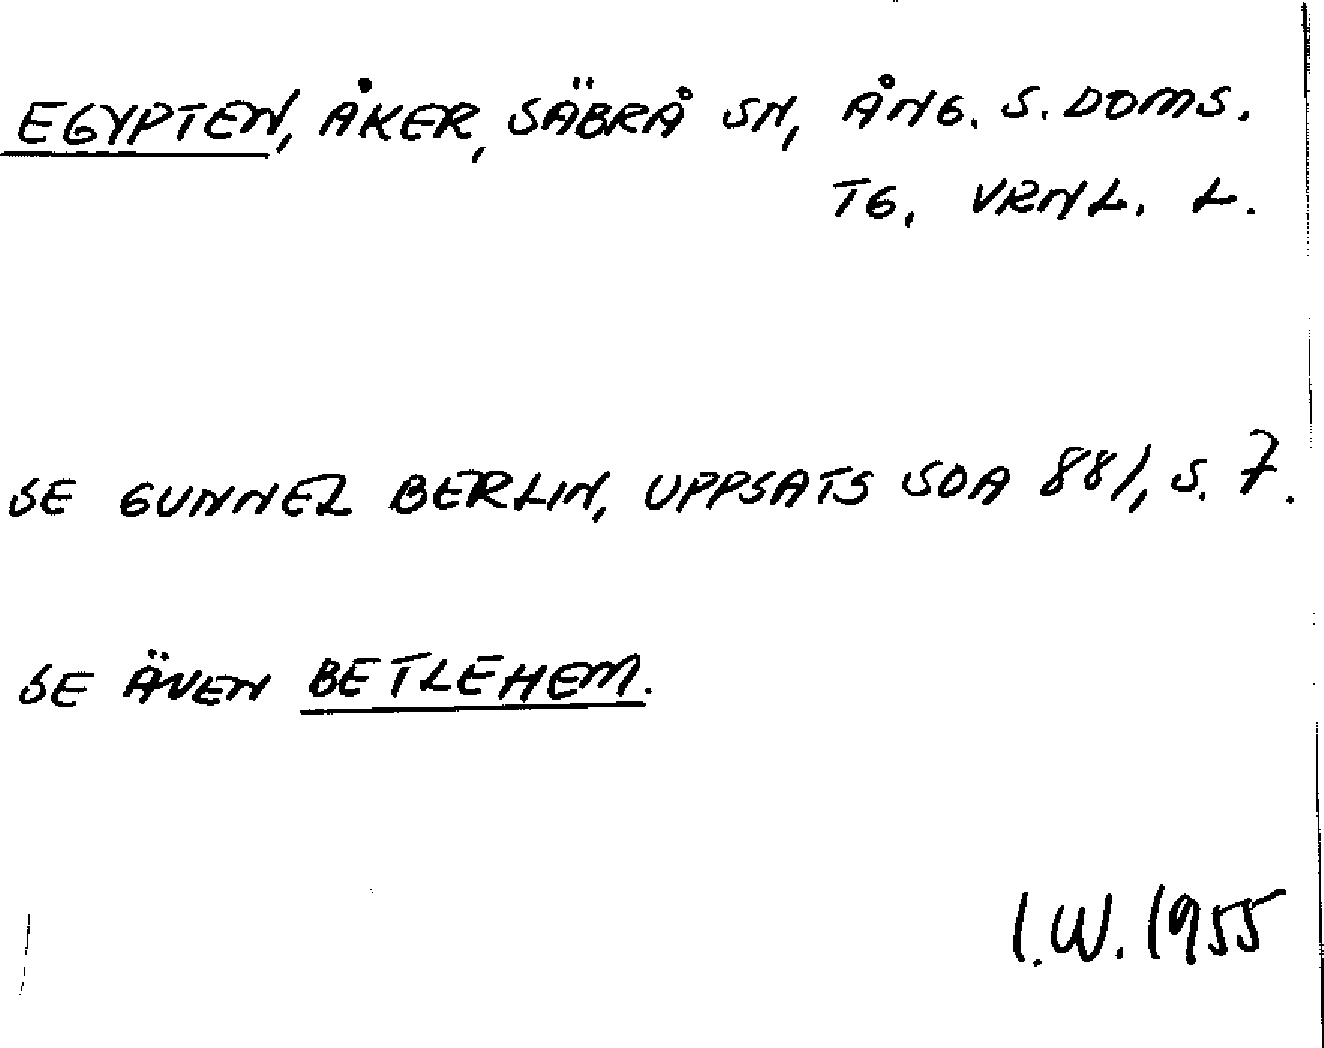 EGYPTEN, ÅKER, SÄBRÅ SN, ÅNG. S. DOMS.
TG. VRNL. L.
SE GUNNEL BERLIN, UPPSATS SOA 881, S. 7.
SE ÄVEN BETLEHEM.
I.W. 1955